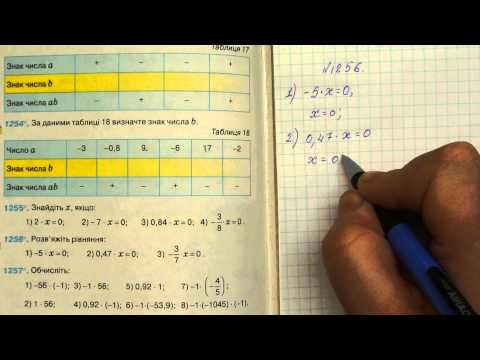 Таблиця 17
Знак числа a + – – +
Знак числа b
Знак числа ab – + – +
1254°. За даними таблиці 18 визначте знак числа b.
Таблиця 18
Число a –3 –0,8 9, –6 1,7 –2
Знак числа b
Знак числа ab – + – + – –
1255°. Знайдіть x, якщо:
1) 2 · x = 0; 2) –7 · x = 0; 3) 0,84 · x = 0; 4) –3/8 x = 0.
1256°. Розв'яжіть рівняння:
1) –5 · x = 0; 2) 0,47 · x = 0; 3) –3/7 x = 0.
1257°. Обчисліть:
1) –56 · (–1); 3) –1 · 56; 5) 0,92 · 1; 7) –1 · (–4/5);
2) 1 · 56; 4) 0,92 · (–1); 6) –1 · (–53,9); 8) –1 · (–1045) · (–1).
№1256.
1) –5 · x = 0,
x = 0;
2) 0,47 · x = 0
x = 0